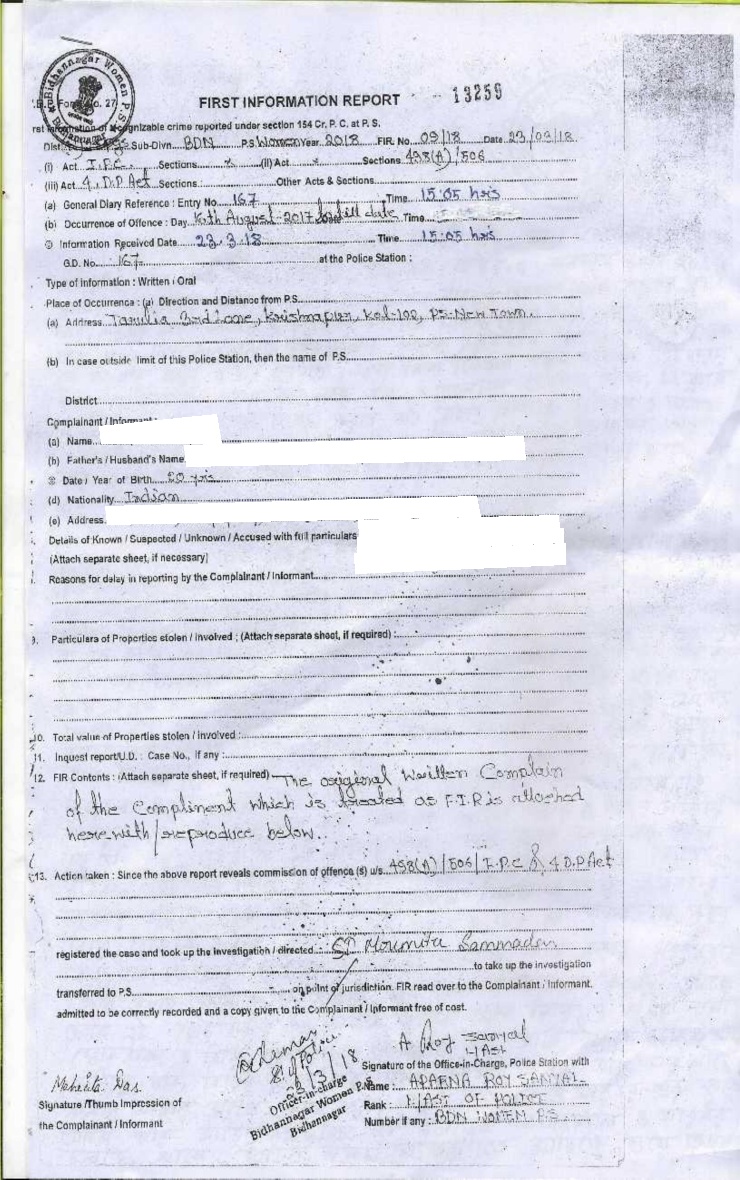 Bidhannagar Women P.S.
Bidhannagar
Form No. 27
FIRST INFORMATION REPORT
13259
cognizable crime reported under section 154 Cr. P. C. at P. S.
Dist. Sub-Divn. BDN P.S Women Year 2018 FIR. No 09/18 Date 23/03/18
(i) Act I.P.C. Sections x (ii) Act x Sections 498(A)/506
(iii) Act 4, D.P Act Sections : Other Acts & Sections
(a) General Diary Reference : Entry No 167 Time 15:05 hrs
(b) Occurrence of Offence : Day 16th August-2017 till date Time
Information Received Date 23.3.18 Time 15:05 hrs
G.D. No. 167 at the Police Station :
Type of information : Written / Oral
Place of Occurrence : (a) Direction and Distance from P.S.
(a) Address Tarulia 3rd Lane, Krishnapur, Kol-102, PS-New Town.
(b) In case outside limit of this Police Station, then the name of P.S.
District
Complainant / Informant :
(a) Name
(b) Father's / Husband's Name
Date / Year of Birth 20 yrs
(d) Nationality Indian
(e) Address
Details of Known / Suspected / Unknown / Accused with full particulars
(Attach separate sheet, if necessary)
Reasons for delay in reporting by the Complainant / Informant
9. Particulars of Properties stolen / involved ; (Attach separate sheet, if required) :
10. Total value of Properties stolen / involved :
11. Inquest report/U.D. : Case No., if any :
12. FIR Contents : (Attach separate sheet, if required) The original Written Complain
of the Compliment which is treated as F.I.R is attached
herewith/reproduce below.
13. Action taken : Since the above report reveals commission of offence (s) u/s 498(A)/506/I.P.C & 4 D.P Act
registered the case and took up the investigation / directed : SI Moumita Sammadar
to take up the investigation
transferred to P.S. on point of jurisdiction. FIR read over to the Complainant / Informant.
admitted to be correctly recorded and a copy given to the Complainant / Informant free of cost.
A Roy Sanyal
L/ASI
23/3/18
Officer-in-Charge
Bidhannagar Women P.S
Bidhannagar
Signature of the Office-in-Charge, Police Station with
Name : APARNA ROY SANYAL
Rank : L/ASI OF POLICE
Number if any : BDN WOMEN P.S.
Das
Signature /Thumb Impression of
the Complainant / Informant